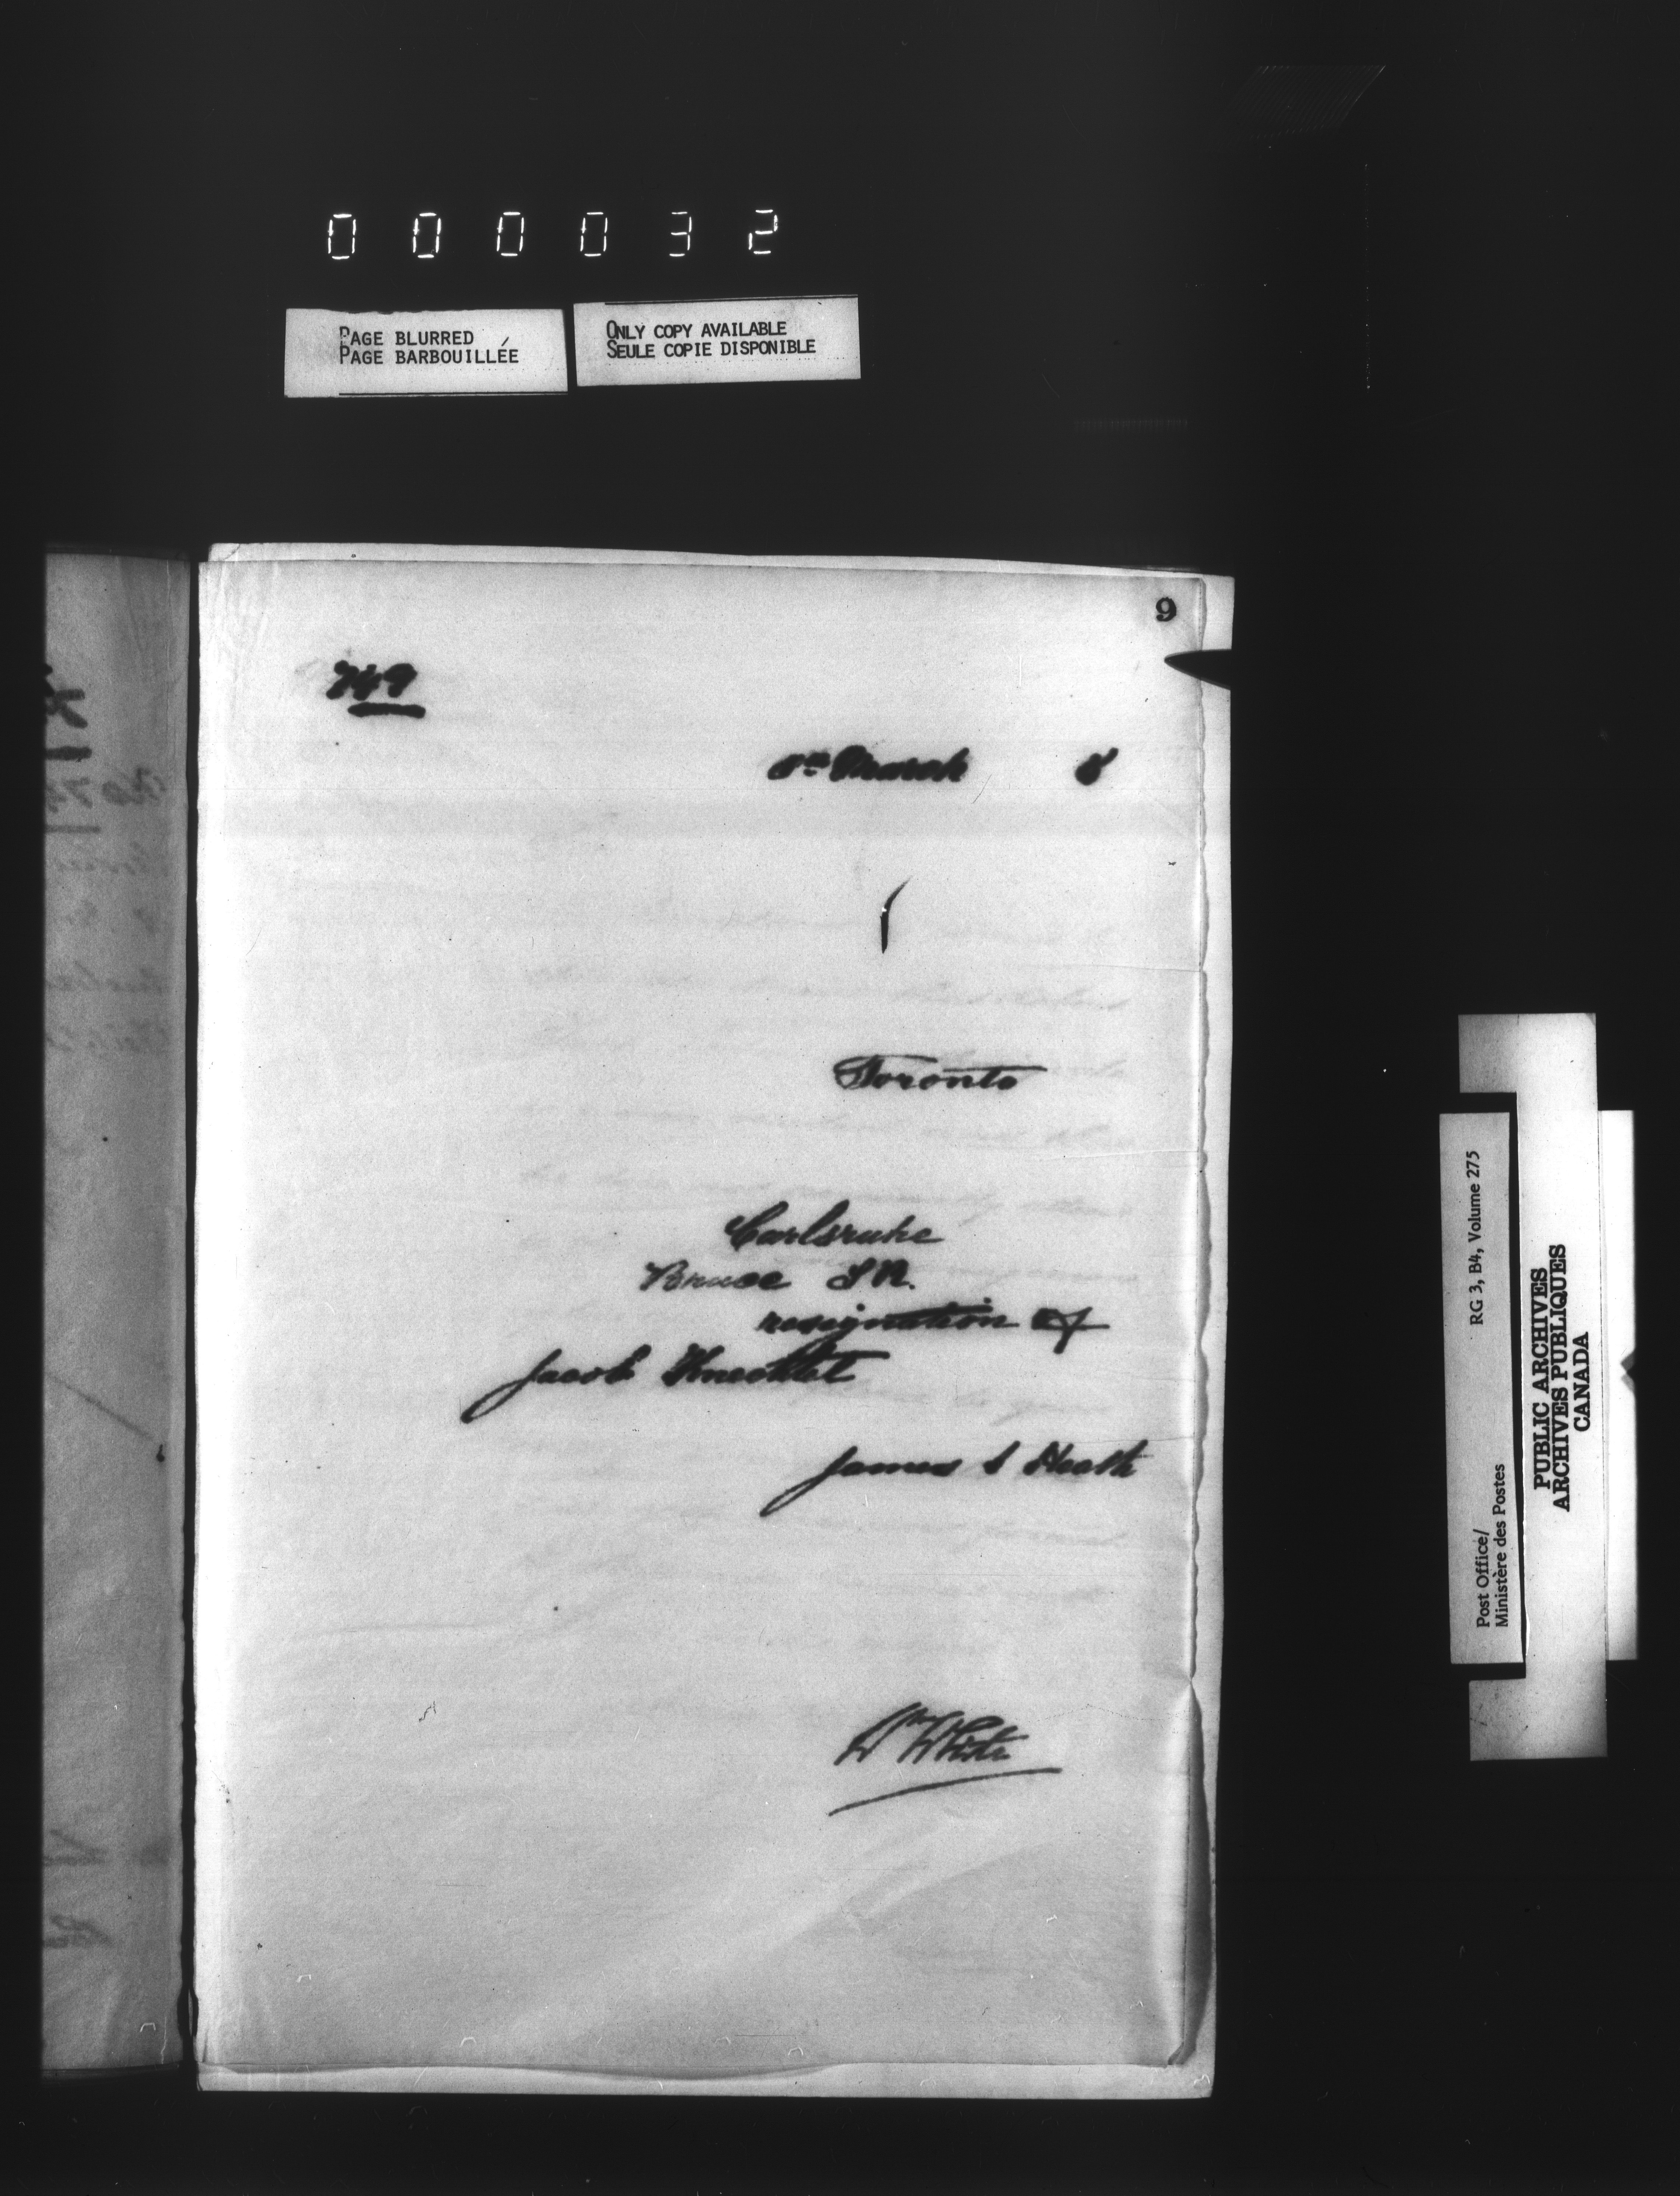 000032
PAGE BLURRED
PAGE BARBOUILLÉE
ONLY COPY AVAILABLE
SEULE COPIE DISPONIBLE
9
749
8th March 8
Toronto
Carlsruhe
Bruce S R.
resignation of
Jacob Knechtel
James S Heath
Wm White
RG 3, B4, Volume 275
Post Office/
Ministère des Postes
PUBLIC ARCHIVES
ARCHIVES PUBLIQUES
CANADA